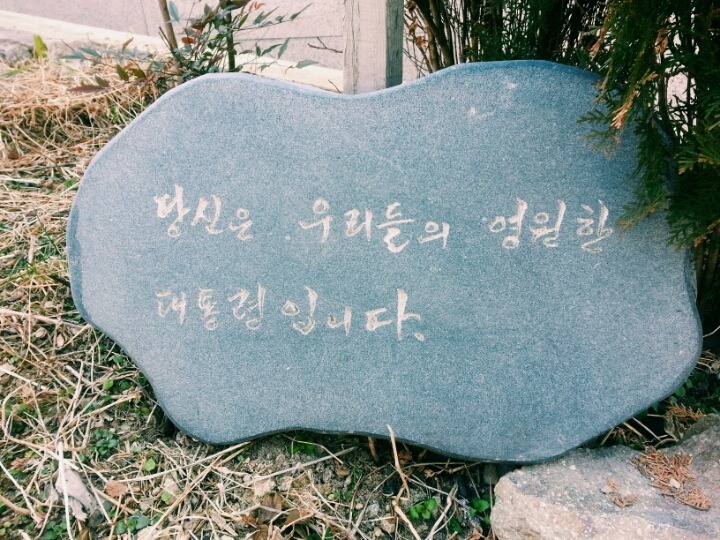 당신은 우리들의 영원한
대통령입니다.